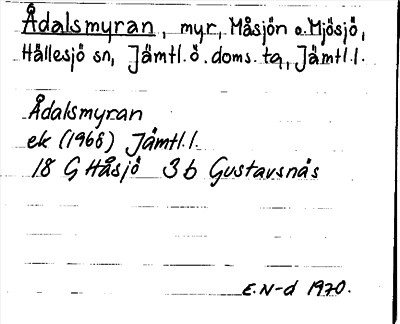 Ådalsmyran, myr, Måsjön o. Mjösjö,
Hällesjö sn, Jämtl. ö. doms. ta, Jämtl. l.
Ådalsmyran
ek (1968) Jämtl. l.
18 G Håsjö 3b Gustavsnäs
E. N-d 1970.